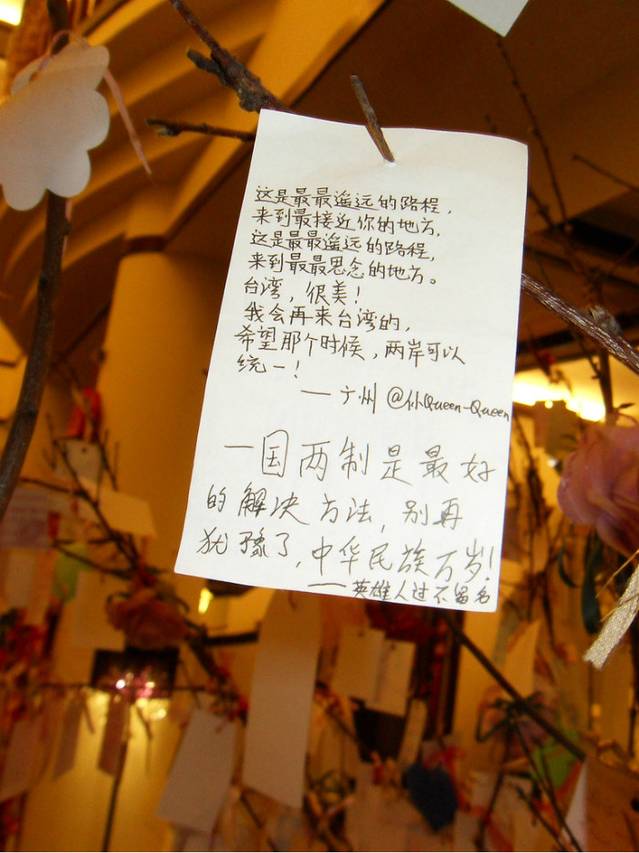 这是最最遥远的路程，
来到最接近你的地方，
这是最最遥远的路程，
来到最最思念的地方。
台湾，很美！
我会再来台湾的，
希望那个时候，两岸可以
统一！
— 广州 @仦Queen-Queen
一国两制是最好
的解决方法，别再
犹豫了，中华民族万岁！
— 英雄人过不留名